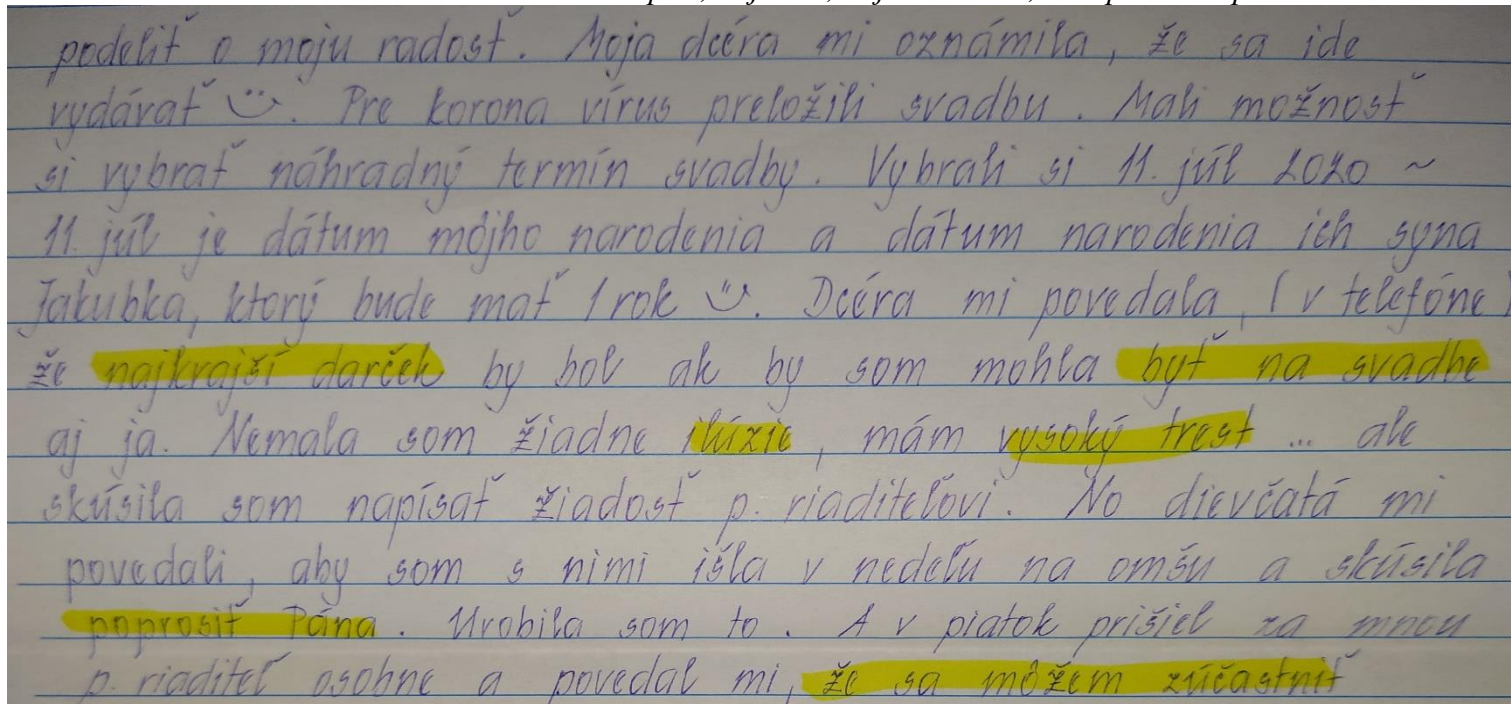 podeliť o moju radosť. Moja dcéra mi oznámila, že sa ide
vydávať ☺. Pre korona vírus preložili svadbu. Mali možnosť
si vybrať náhradný termín svadby. Vybrali si 11. júl 2020 ~
11. júl je dátum môjho narodenia a dátum narodenia ich syna
Jakubka, ktorý bude mať 1 rok ☺. Dcéra mi povedala, (v telefóne)
že najkrajší darček by bol ak by som mohla byť na svadbe
aj ja. Nemala som žiadne ilúzie, mám vysoký trest ... ale
skúsila som napísať žiadosť p. riaditeľovi. No dievčatá mi
povedali, aby som s nimi išla v nedeľu na omšu a skúsila
poprosiť Pána. Urobila som to. A v piatok prišiel za mnou
p. riaditeľ osobne a povedal mi, že sa môžem zúčastniť